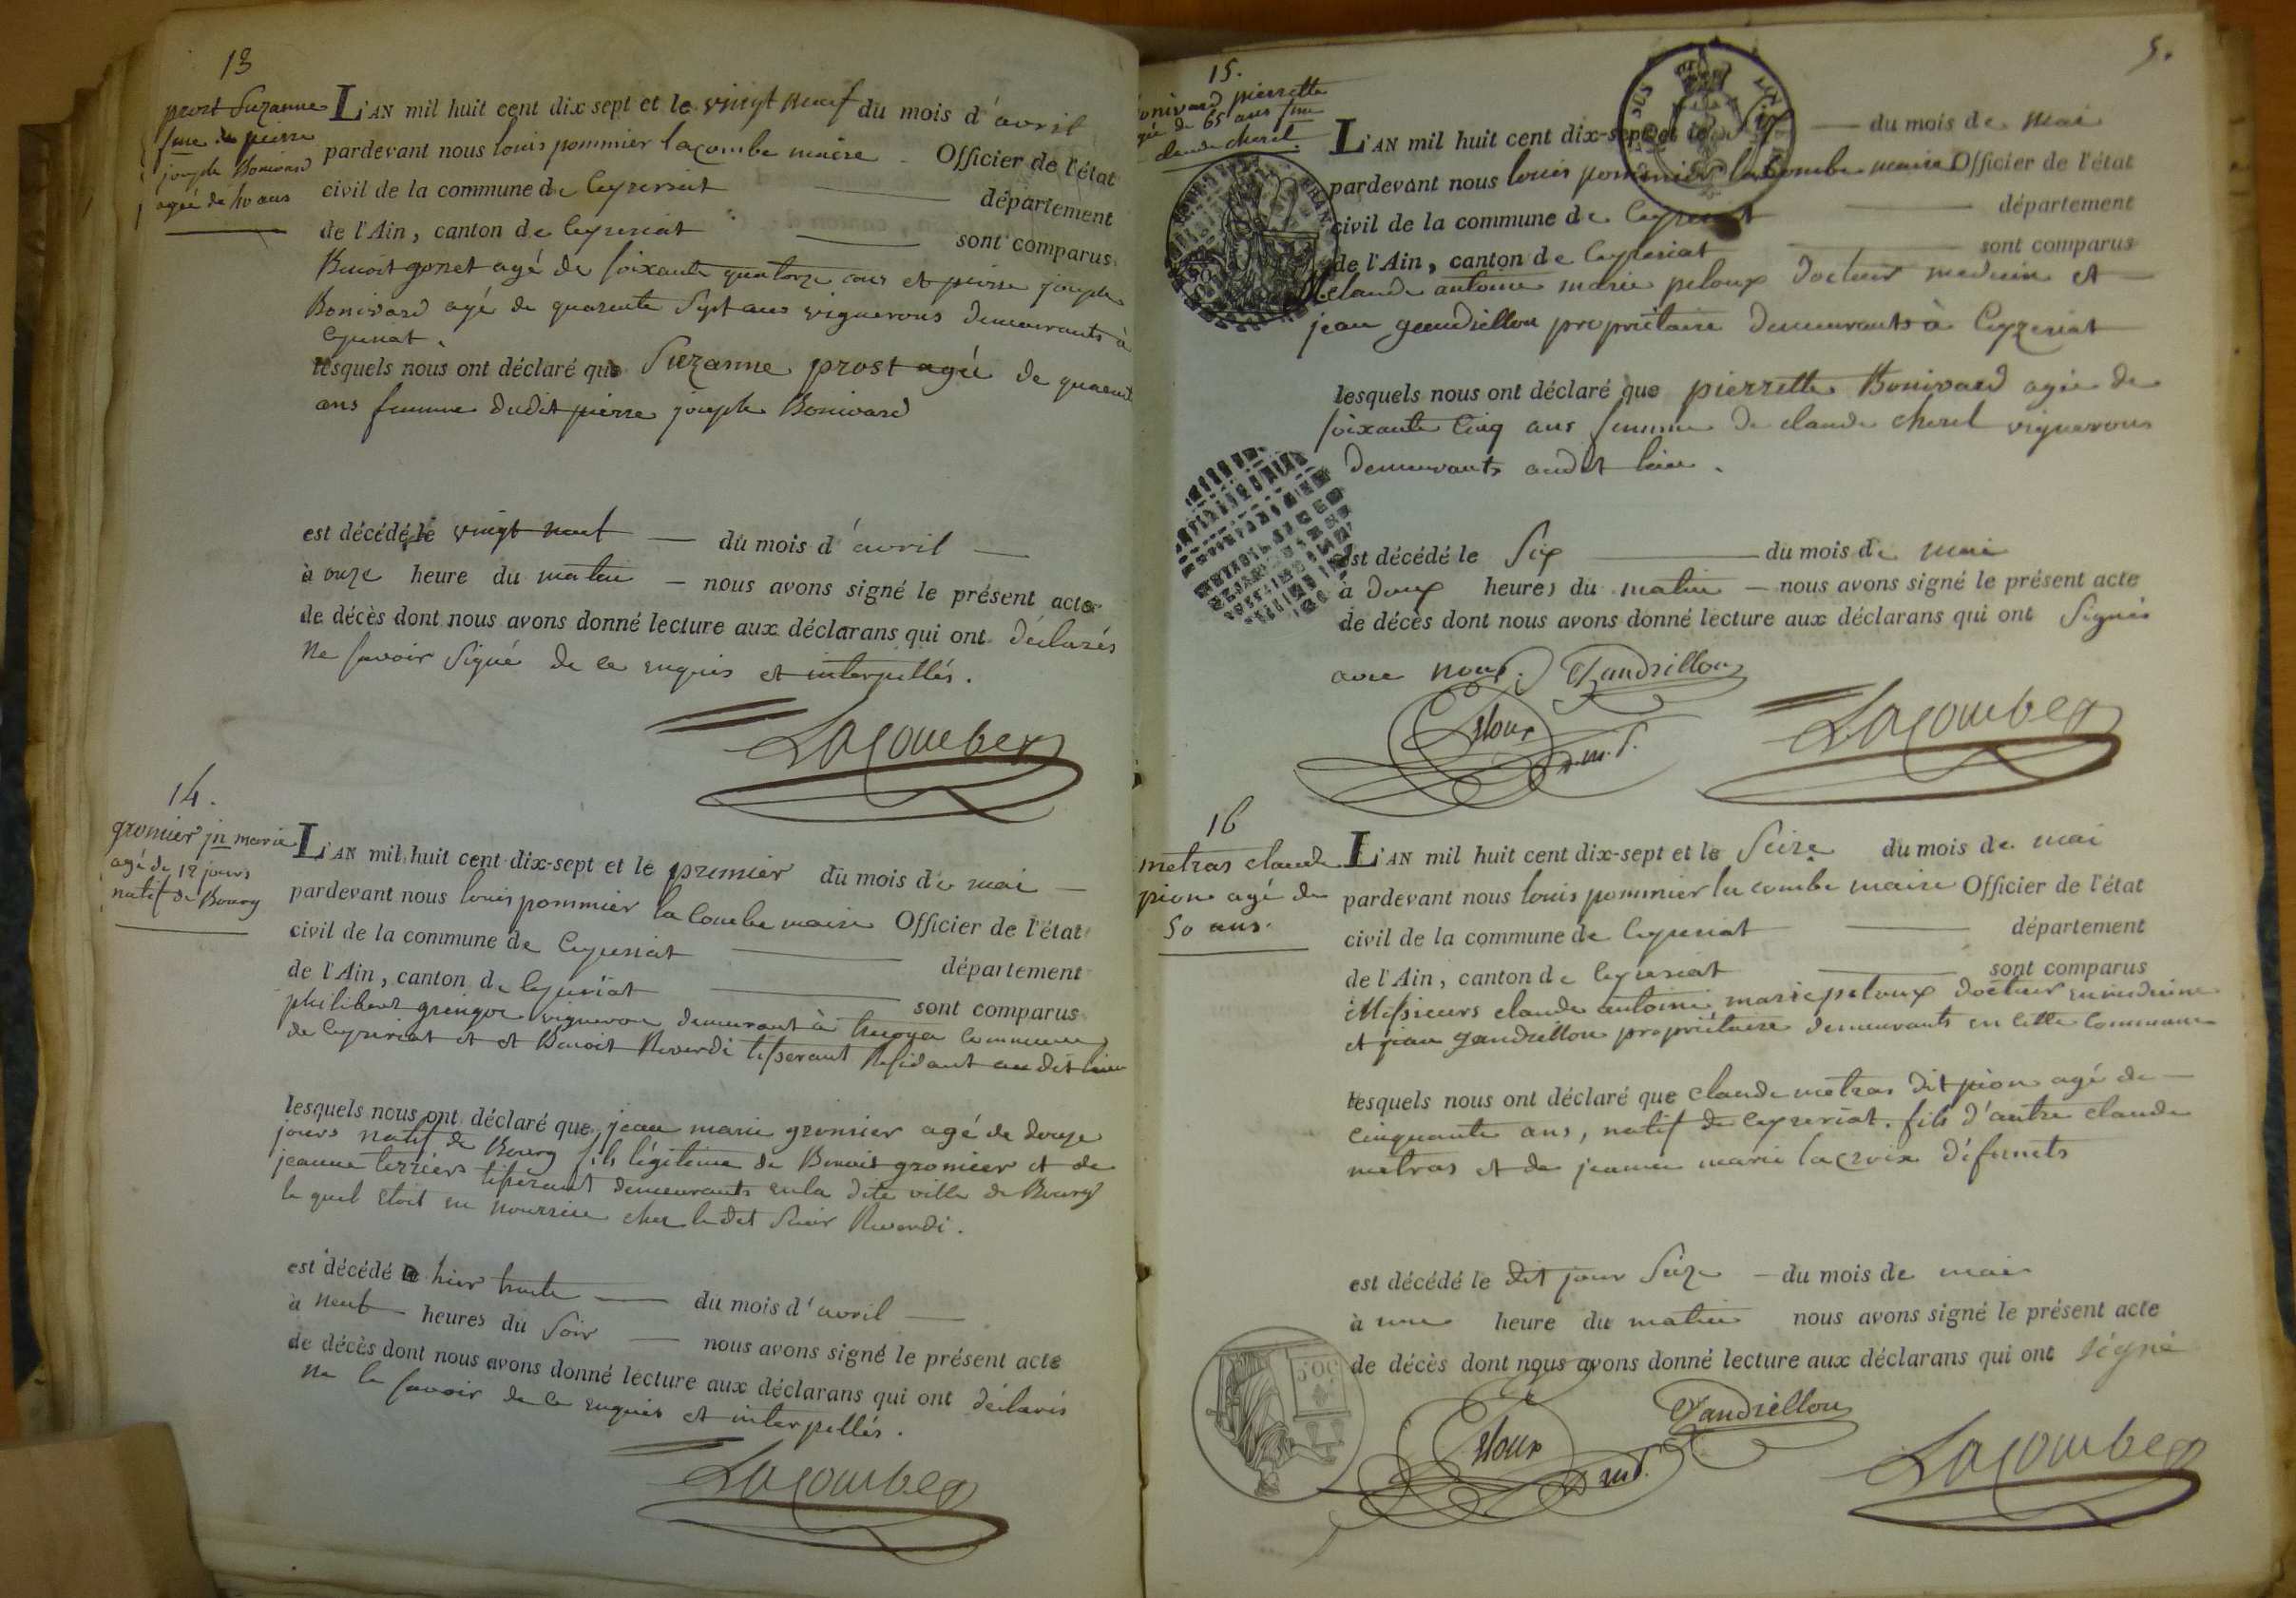 13
prost Suzanne
fme de pierre
joseph Bonivard
agée de 40 ans
L'AN mil huit cent dix sept et le vingt neuf du mois d'avril
pardevant nous louis pommier lacombe maire Officier de l'état
civil de la commune de Ceyzeriat département
de l'Ain, canton de Ceyzeriat sont comparus
Benoit gonet agé de soixante quatorze ans et pierre joseph
Bonivard agé de quarante Sept ans vignerons demeurants à
Ceyzeriat.
lesquels nous ont déclaré que Suzanne prost agée de quarente
ans femme dudit pierre joseph Bonivard
est décédé le vingt neuf du mois d'avril
à onze heure du matin nous avons signé le présent acte
de décès dont nous avons donné lecture aux déclarans qui ont déclarés
ne savoir Signé de ce enquis et interpellés.
Lacombe
14.
gromier jn marie
agé de 12 jours
natif de Bourg
L'AN mil huit cent dix-sept et le premier du mois de mai
pardevant nous louis pommier la Combe maire Officier de l'état
civil de la commune de Ceyzeriat département
de l'Ain, canton de Ceyzeriat sont comparus
philibert gringoz vigneron demeurant à commune
de Ceyzeriat et et Benoit Reverdi tisserant Résidant au dit lieu
lesquels nous ont déclaré que jean marie gromier agé de douze
jours natif de Bourg fils légitime de Benoit gromier et de
jeanne terriers tisserant demeurants en la dite ville de Bourg
le quel etoit en nourrice chez le dit Sieur Reverdi.
est décédé le hier trente du mois d'avril
à neuf heures du Soir nous avons signé le présent acte
de décès dont nous avons donné lecture aux déclarans qui ont déclarés
ne le savoir de ce enquis et interpellés.
Lacombe
5.
15.
Bonivard pierrette
agée de 65 ans fme
claude cherel
L'AN mil huit cent dix-sept et le Six du mois de mai
pardevant nous louis pommier lacombe maire Officier de l'état
civil de la commune de Ceyzeriat département
de l'Ain, canton de Ceyzeriat sont comparus
claude antoine marie peloux docteur medecin et
jean gandrillon propriétaire demeurants à Ceyzeriat
lesquels nous ont déclaré que pierrette Bonivard agée de
soixante Cinq ans femme de claude cherel vignerons
demeurants audit lieu.
est décédé le Six du mois de mai
à deux heures du matin nous avons signé le présent acte
de décès dont nous avons donné lecture aux déclarans qui ont Signés
avec nous. Gandrillon
Peloux d.m.P. Lacombe
16
metras claude
pion agé de
50 ans.
L'AN mil huit cent dix-sept et le Seize du mois de mai
pardevant nous louis pommier la combe maire Officier de l'état
civil de la commune de Ceyzeriat département
de l'Ain, canton de Ceyzeriat sont comparus
Messieurs claude antoine marie peloux docteur en medecine
et jean gandrillon propriétaire demeurants en cette Commune
lesquels nous ont déclaré que claude metras dit pion agé de
cinquante ans, natif de Ceyzeriat. fils d'autre claude
metras et de jeanne marie lacroix défunets
est décédé le dit jour Seize du mois de mai
à une heure du matin nous avons signé le présent acte
de décès dont nous avons donné lecture aux déclarans qui ont signé
Gandrillon
Peloux Lacombe